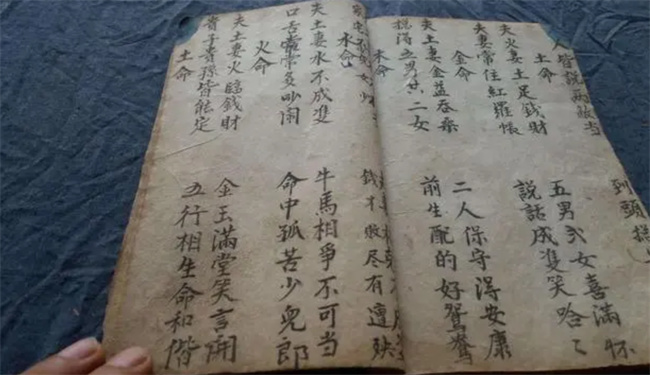 人皆説
土命
夫火妻土足錢財 五男弍女喜滿怀
夫妻常住紅羅帳 説話成雙笑哈〻
金命
夫土妻金益 二人保守得安康
得五男 二女 前生配的好鴛鴦
木命
錢才散尽有遭殃
水命
夫土妻水不成雙 牛馬相爭不可当
口舌常常多吵闹 命中孤苦少兒郎
火命
夫土妻火臨錢財 金玉滿堂笑言開
貴子貴孫皆能定 五行相生命和偕
土命